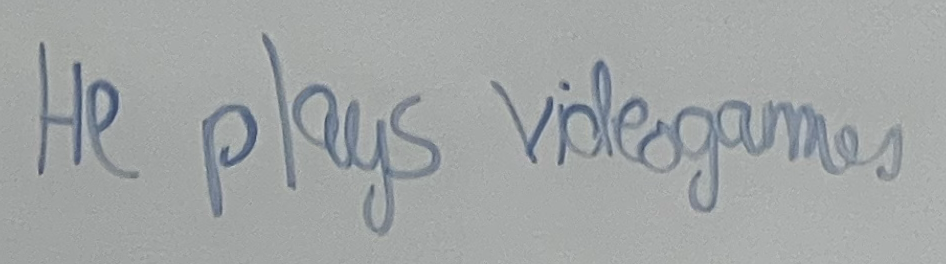 He plays videogames